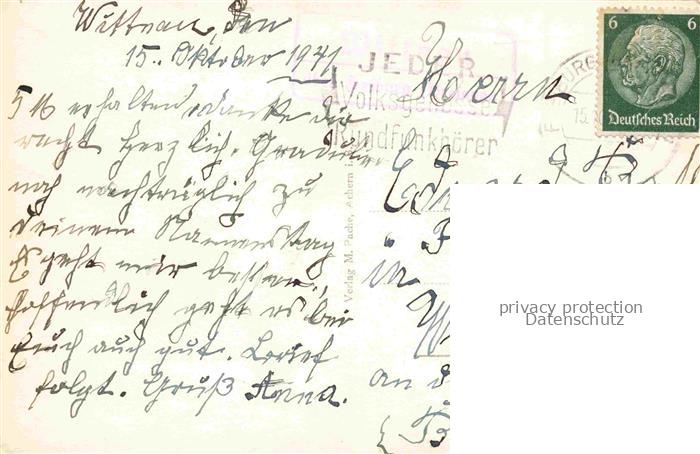 Wittnau, den
15. Oktober 1941
5 M erhalten danke dir
recht herzlich. Gratuliere
noch nachträglich zu
Deinem Namenstag
Es geht mir besser.
Hoffendlich geht es bei
Euch auch gut. Brief
folgt. Gruß Anna.
JEDER
Volksgenosse
Rundfunkhörer
6 6
Deutsches Reich
Herrn
in
Verlag M. Pache, Achern i.
privacy protection
Datenschutz